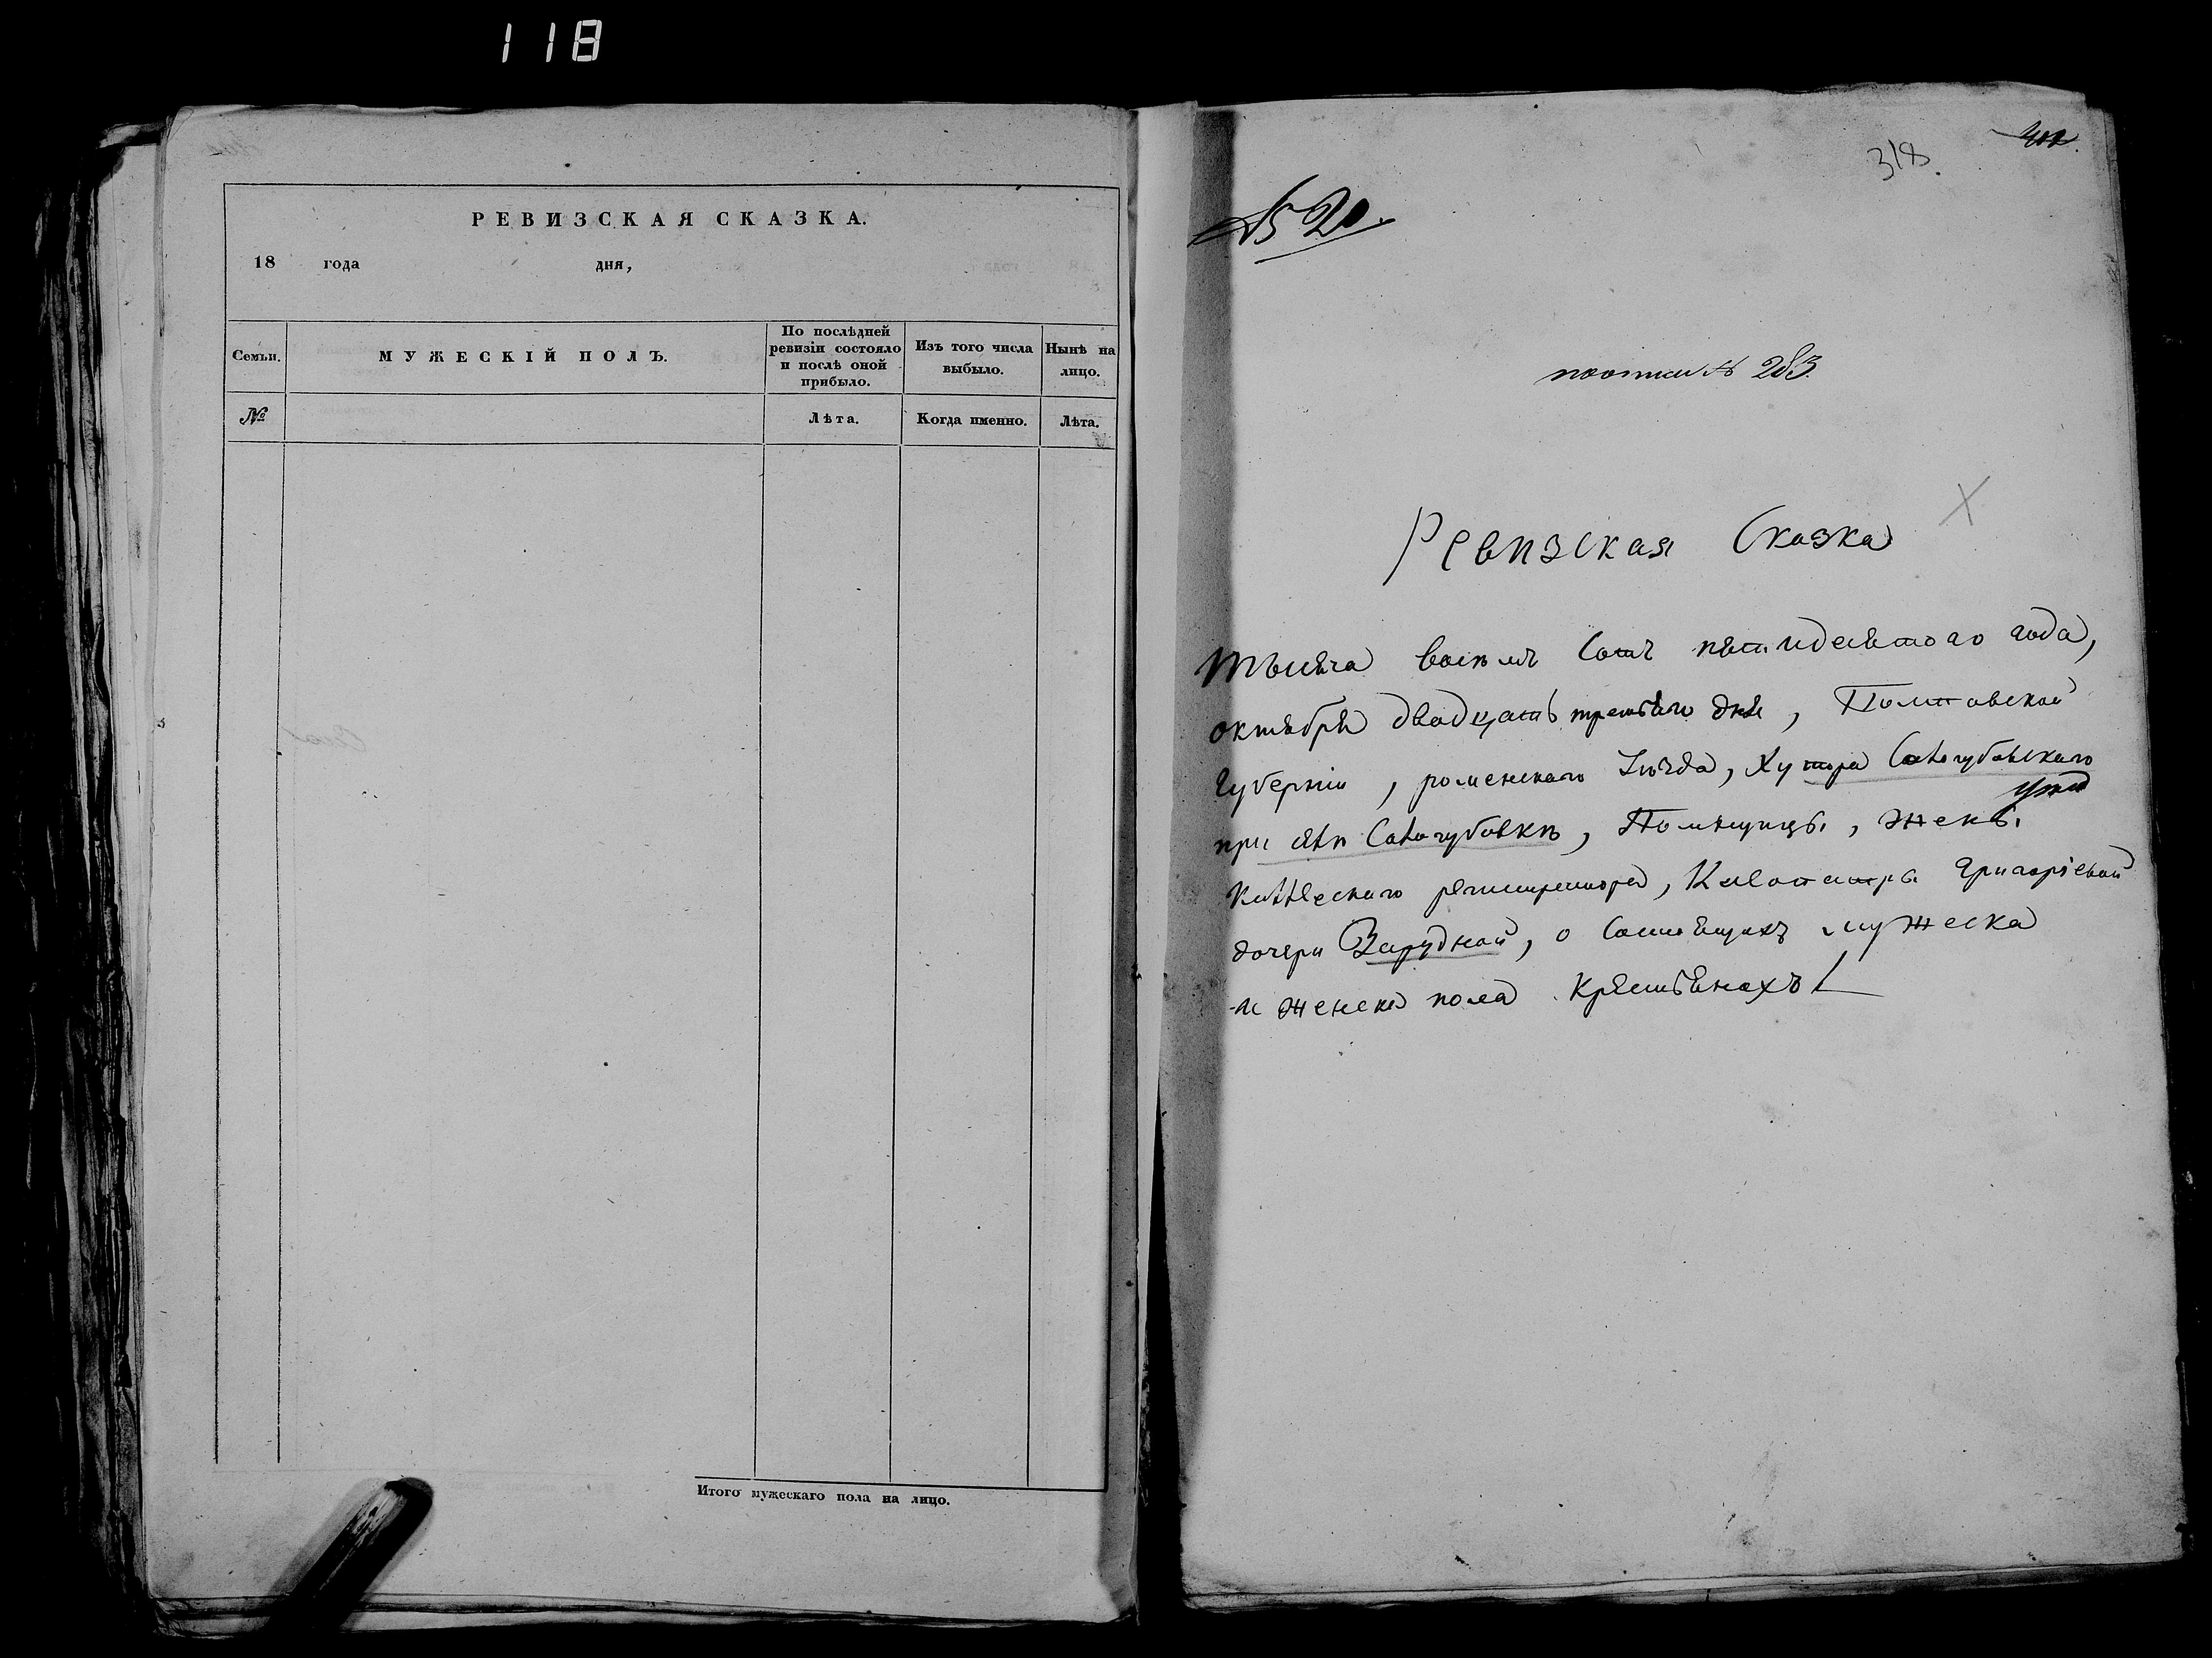 118
РЕВИЗСКАЯ СКАЗКА.
18 года дня,
Семьи.
МУЖЕСКІЙ ПОЛЪ.
По послѣдней
ревизіи состояло
и послѣ оной
прибыло.
Изъ того числа
выбыло.
Нынѣ на
лицо.
№
Лѣта.
Когда именно.
Лѣта.
Итого мужескаго пола на лицо.
318.
№ 20.
№ 283
Ревизская Сказка
Тысяча восемъ сотъ пятидесятого года,
октября двадцать третьяго дня, Полтавской
Губерніи, роменскаго уѣзда, Хутора
при, Помѣщицы, жены
регистратора, Клеопатры Григоріевой
дочери Зарудной, о состоящихъ мужеска
и женска пола крестьянахъ